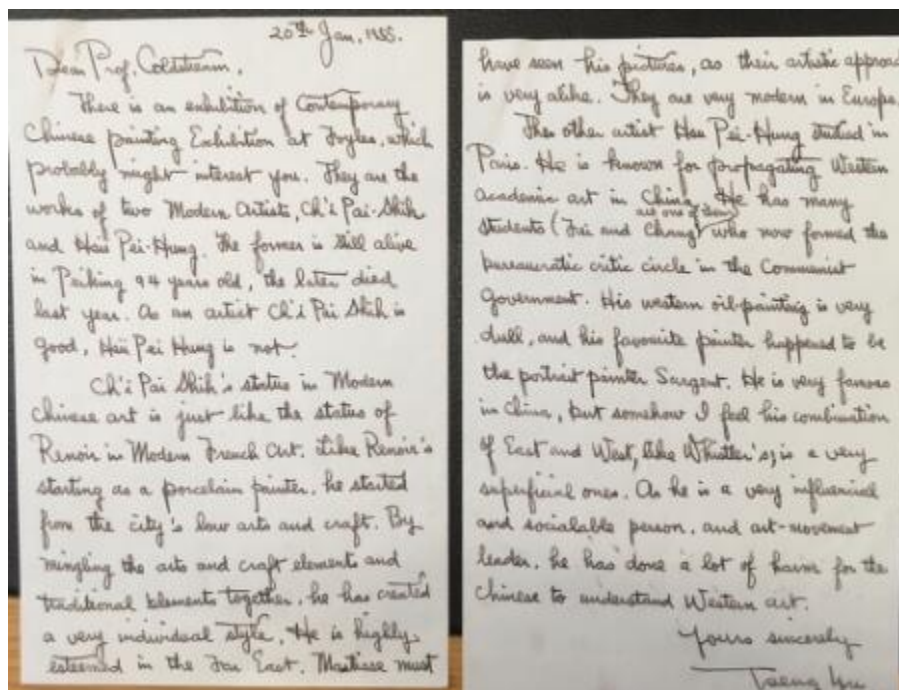 20th Jan. 1955.
Dear Prof. Coldstream,
There is an exhibition of Contemporary
Chinese painting Exhibition at Foyles, which
probably might interest you. They are the
works of two Modern Artists, Ch'i Pai-Shih
and Hsü Pei-Hung. The former is still alive
in Peiking 94 years old, the later died
last year. As an artist Ch'i Pai Shih is
good, Hsü Pei Hung is not.
Ch'i Pai Shih's status in Modern
Chinese art is just like the status of
Renoir in Modern French Art. Like Renoir's
starting as a porcelain painter, he started
from the city's low arts and craft. By
mingling the arts and craft elements and
traditional elements together, he has created
a very individual style. He is highly
esteemed in the Far East. Mastisse must
have seen his pictures, as their artistic approac
is very alike. They are very modern in Europe.
The other artist Hsü Pei-Hung studied in
Paris. He is known for propagating Western
Academic art in China. He has many
are one of them
students (Fei and Chang) who now formed the
bureaucratic critic circle in the Communist
Government. His western oil-painting is very
dull, and his favourite painter happened to be
the portrait painter Sargent. He is very famous
in China, but somehow I feel his combination
of East and West, like Whistler's, is a very
superficial ones. As he is a very influencial
and socialable person, and art-movement
leader, he has done a lot of harm for the
Chinese to understand Western art.
Yours sincerely
Tseng Yu